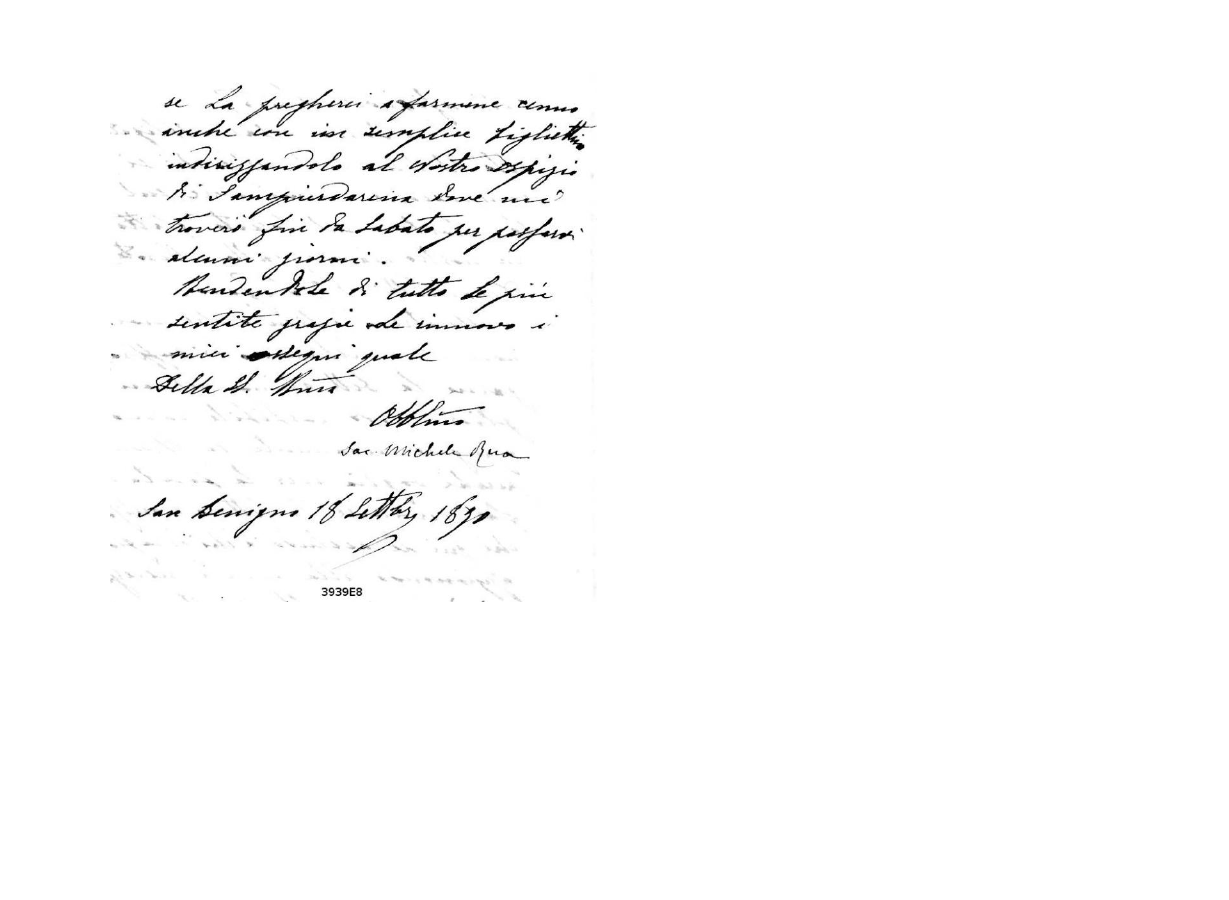 se La pregherei a farmene cenno
anche con un semplice bigliettino
indirizzandolo al Nostro Ospizio
di Sampierdarena dove mi
troverò fin da Sabato per passarvi
alcuni giorni.
Rendendole di tutto le più
sentite grazie Le innovo i
miei ossequi quale
Della S.
Obblmo
Sac. Michele Rua
San Benigno 18 Settbre 1890
3939E8